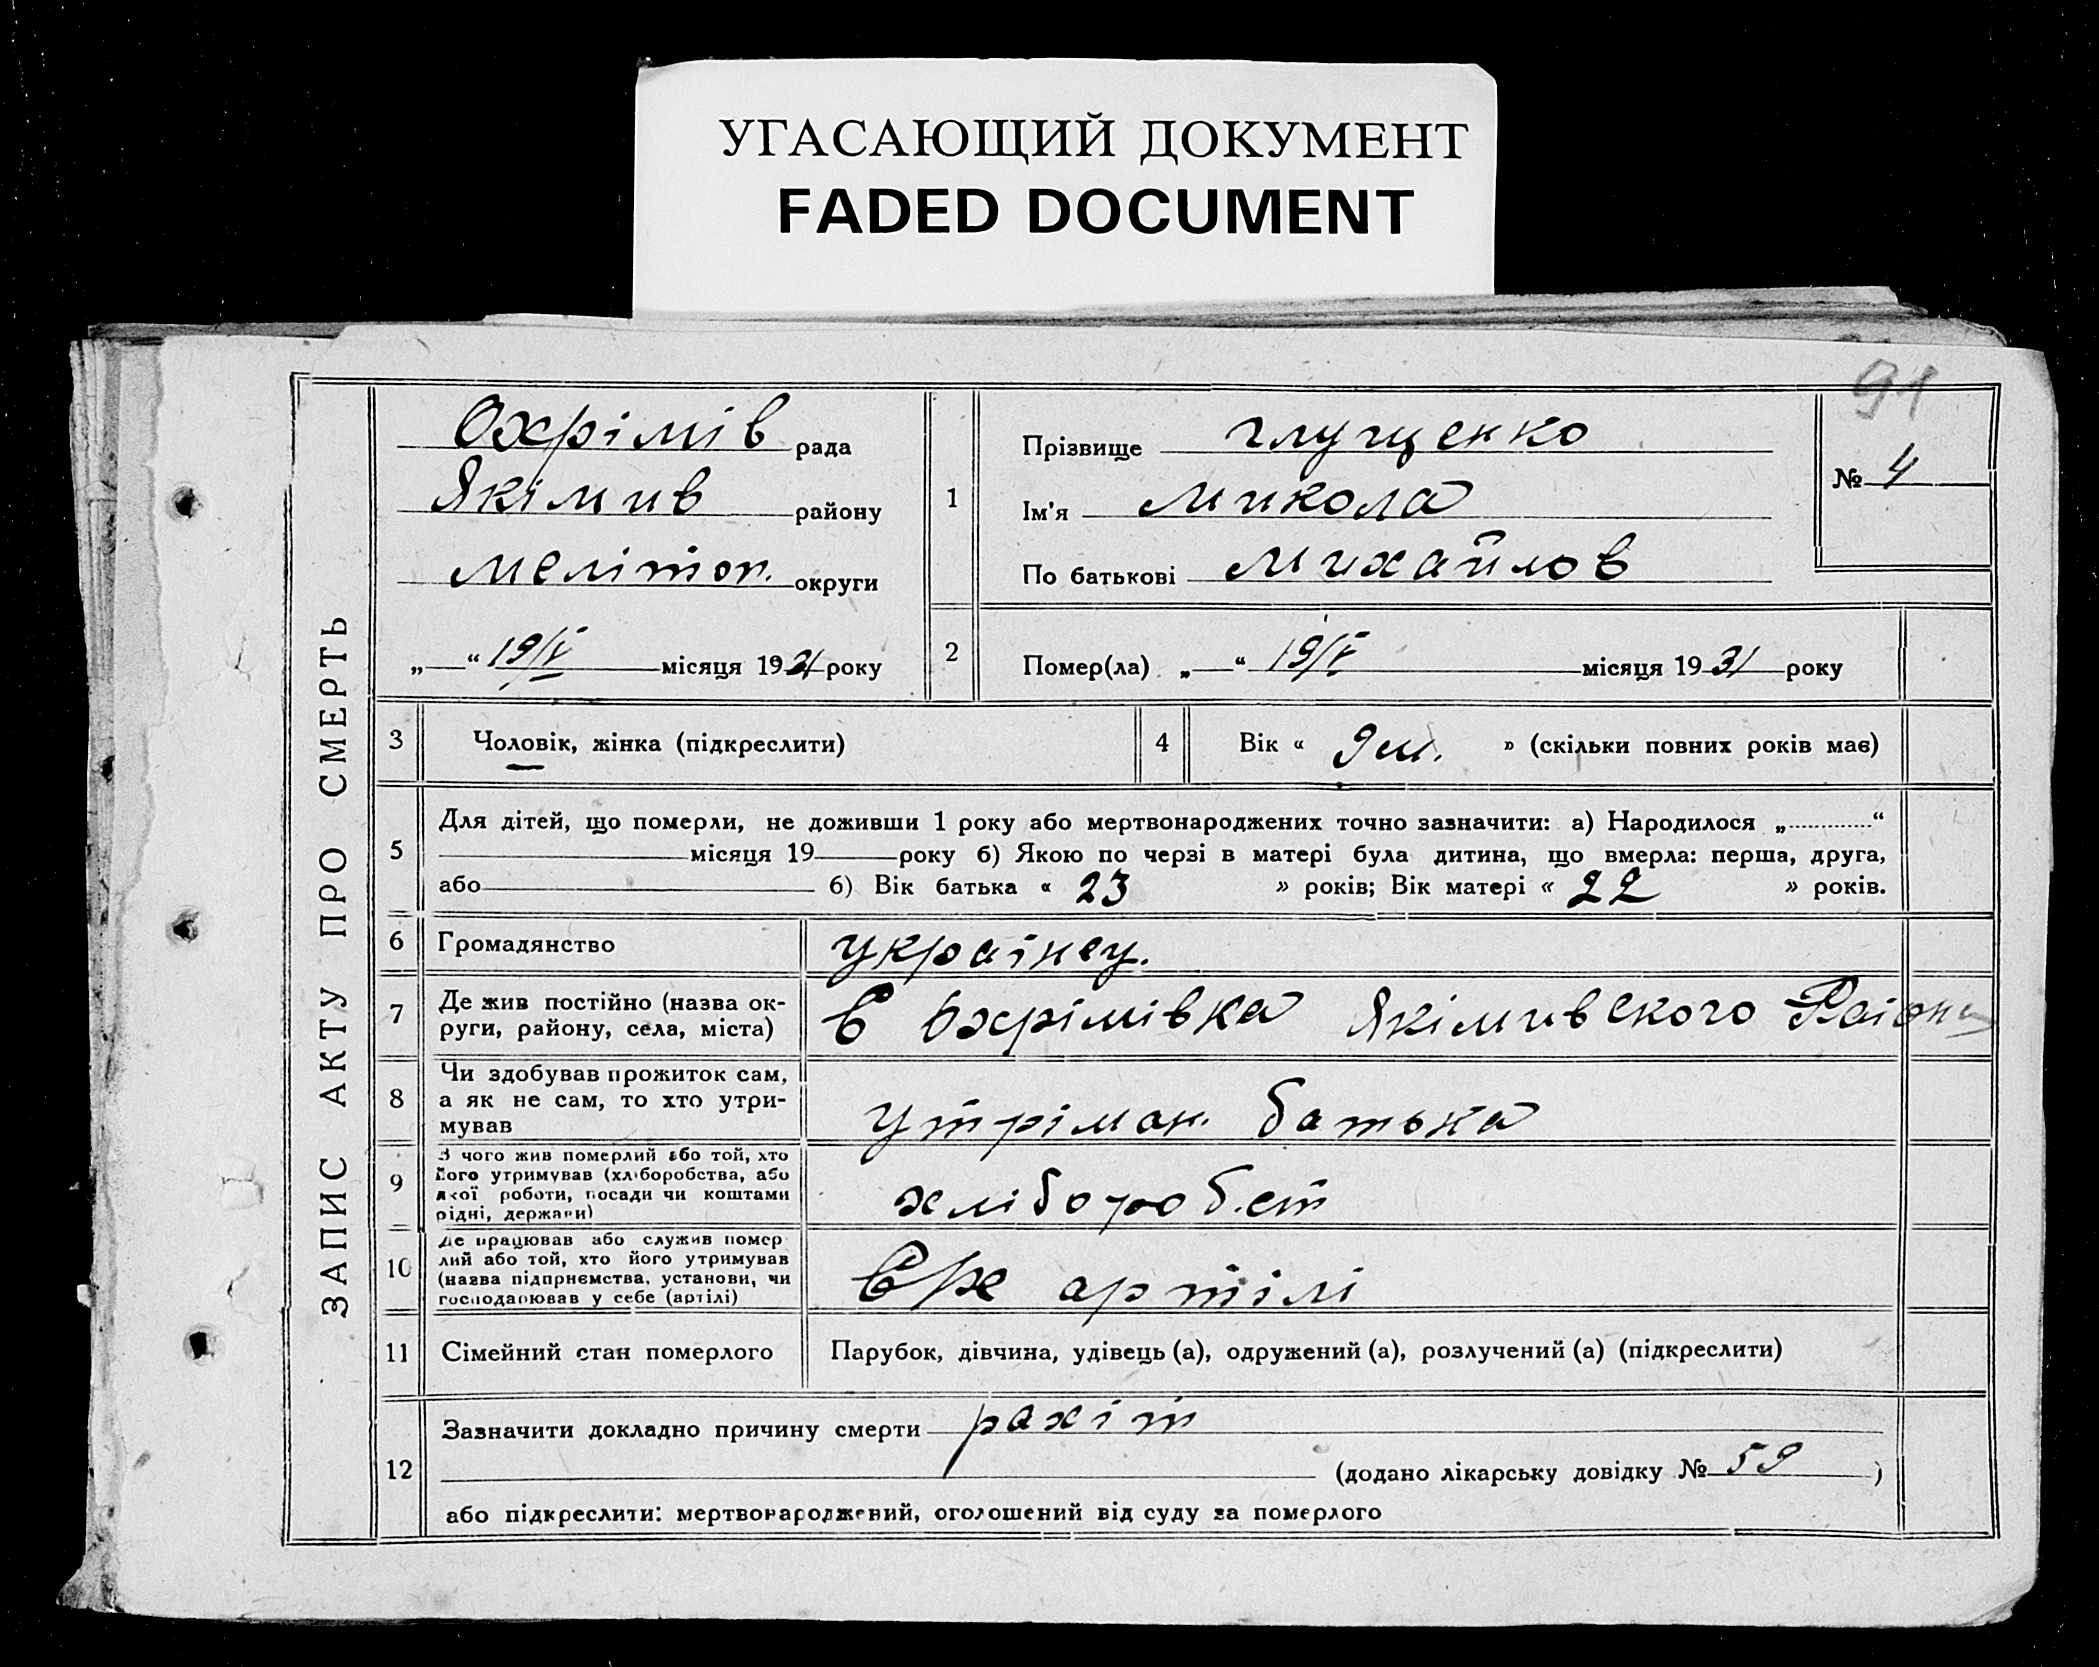 УГАСАЮЩИЙ ДОКУМЕНТ
FADED DOCUMENT
91
ЗАПИС АКТУ ПРО СМЕРТЬ
Охрімів рада
Якімив району
Меліտоп. округи
„ “ 19/V місяця 1931 року
1
Прізвище Глущенко
Ім'я Микола
По батькові Михайлов
№ 4
2
Помер(ла) „ “ 19/V місяця 1931 року
3 Чоловік, жінка (підкреслити)
4 Вік « 9 м. » (скільки повних років має)
5
Для дітей, що померли, не доживши 1 року або мертвонароджених точно зазначити: а) Народилося „ “
місяця 19 року б) Якою по черзі в матері була дитина, що вмерла: перша, друга,
або б) Вік батька « 23 » років; Вік матері « 22 » років.
6 Громадянство
українец.
7
Де жив постійно (назва ок-
руги, району, села, міста)
Охрімівка Якімивского Району
8
Чи здобував прожиток сам,
а як не сам, то хто утри-
мував
утріман. батька
9
З чого жив померлий або той, хто
його утримував (хліборобства, або
якої роботи, посади чи коштами
рідні, держави)
хлібороб.ст
10
Де працював або служив помер
лий або той, хто його утримував
(назва підприємства, установи, чи
господарював у себе (артілі)
артілі
11 Сімейний стан померлого
Парубок, дівчина, удівець (а), одружений (а), розлучений (а) (підкреслити)
12
Зазначити докладно причину смерти рахіт
(додано лікарську довідку № 59 )
або підкреслити: мертвонароджений, оголошений від суду за померлого